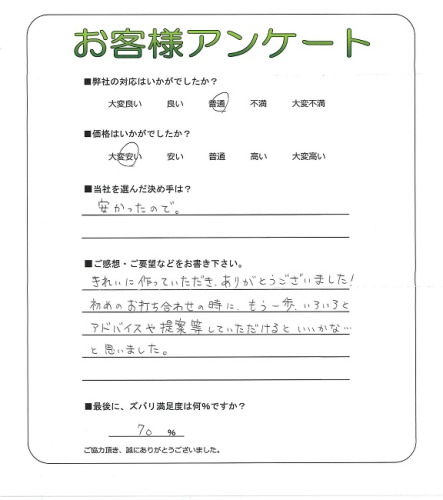 お客様アンケート
■弊社の対応はいかがでしたか?
大変良い 良い 普通 不満 大変不満
■価格はいかがでしたか?
大変安い 安い 普通 高い 大変高い
■当社を選んだ決め手は?
安かったので。
■ご感想・ご要望などをお書き下さい。
きれいに作っていただき、ありがとうございました!
初めのお打ち合わせの時に、もう一歩、いろいろと
アドバイスや提案等していただけるといいかな…
と思いました。
■最後に、ズバリ満足度は何%ですか?
70 %
ご協力頂き、誠にありがとうございました。